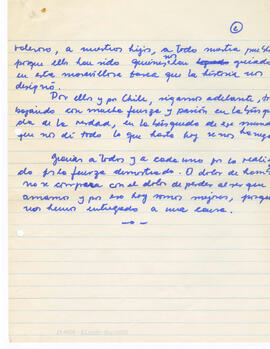 c
valeroso, a nuestros hijos, a todo nuestro pueblo
porque ellos han sido quienes nos han guiado
en esta maravillosa tarea que la historia nos
designó.
Por ellos y por Chile, sigamos adelante, tra
bajando con mucha fuerza y pasión en la búsque
da de la verdad, en la búsqueda de ese mundo
que nos dé todo lo que hasta hoy se nos ha negado
Gracias a todos y a cada uno por lo reali
do y la fuerza demostrada. El dolor de
no se compara con el dolor de perder al ser que
amamos y por eso hoy somos mejores, porque
nos hemos entregado a una causa.